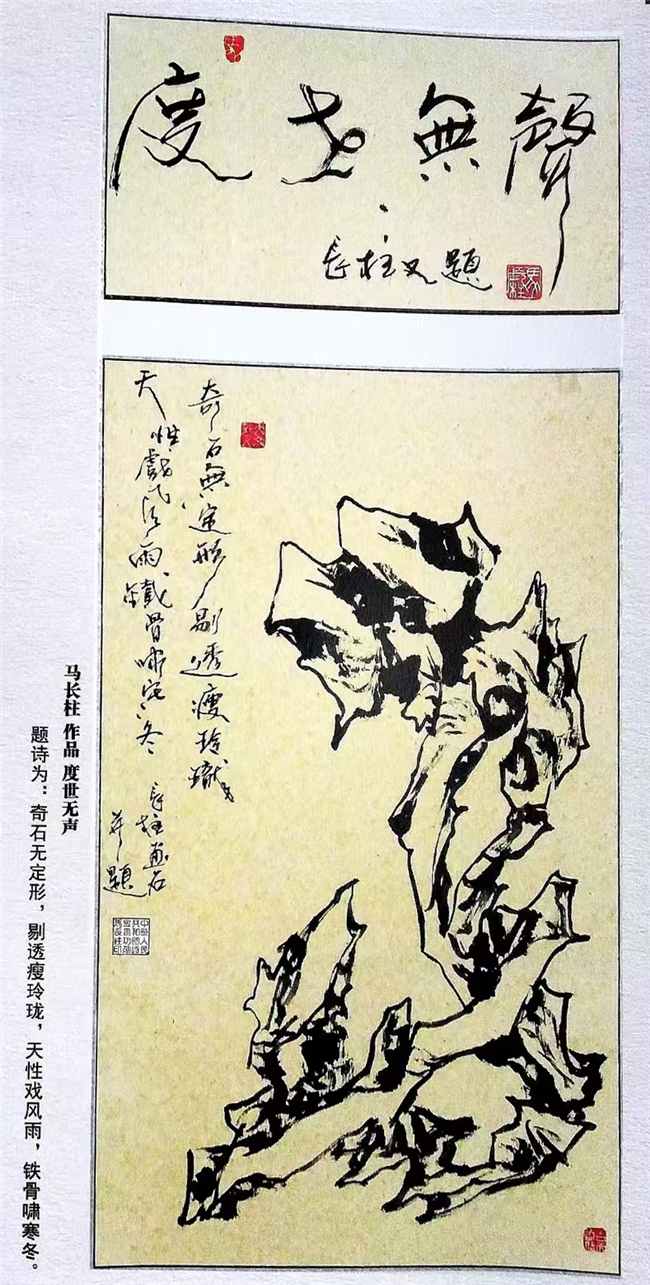 度世無聲
長柱又題
奇石無定形剔透瘦玲瓏
天性戲風雨鐵骨嘯寒冬
長柱畫石
并題
马长柱 作品 度世无声
题诗为：奇石无定形，剔透瘦玲珑，天性戏风雨，铁骨啸寒冬。